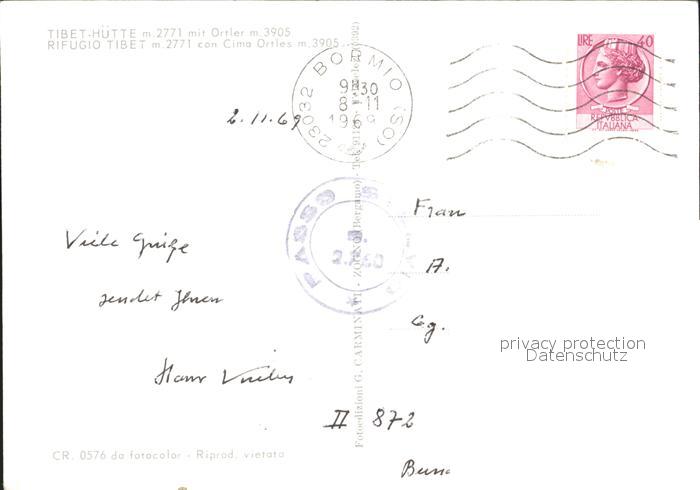 TIBET-HÜTTE m.2771 mit Ortler m.3905
RIFUGIO TIBET m.2771 con Cima Ortles m.3905
LIRE 40
POSTE
REPVBBLICA
ITALIANA
23032 BORMIO (SO)
8-11
2.11.69
PASSO
Viele Grüße
sendet Ihnen
Hans
Frau
A.
privacy protection
Datenschutz
II 872
Fotoedizioni G. CARMINATI - ZOGNO (Bergamo) - Tel.
CR. 0576 da fotocolor - Riprod. vietata